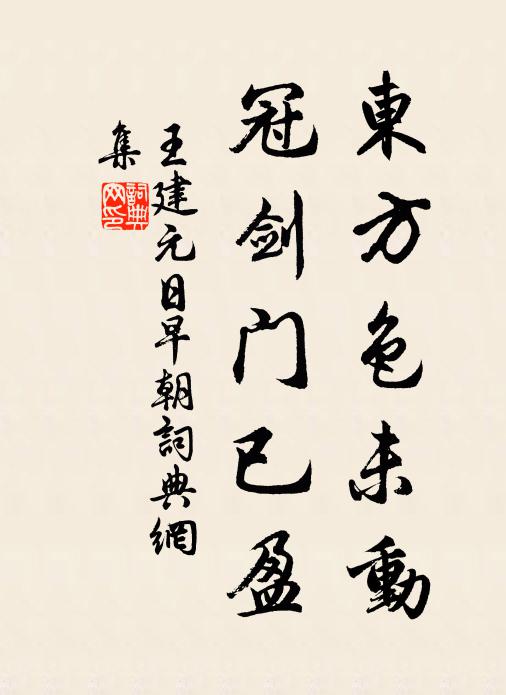 東方色未動
冠剑门已盈
王建元日早朝詞典網
集
詞典
网印